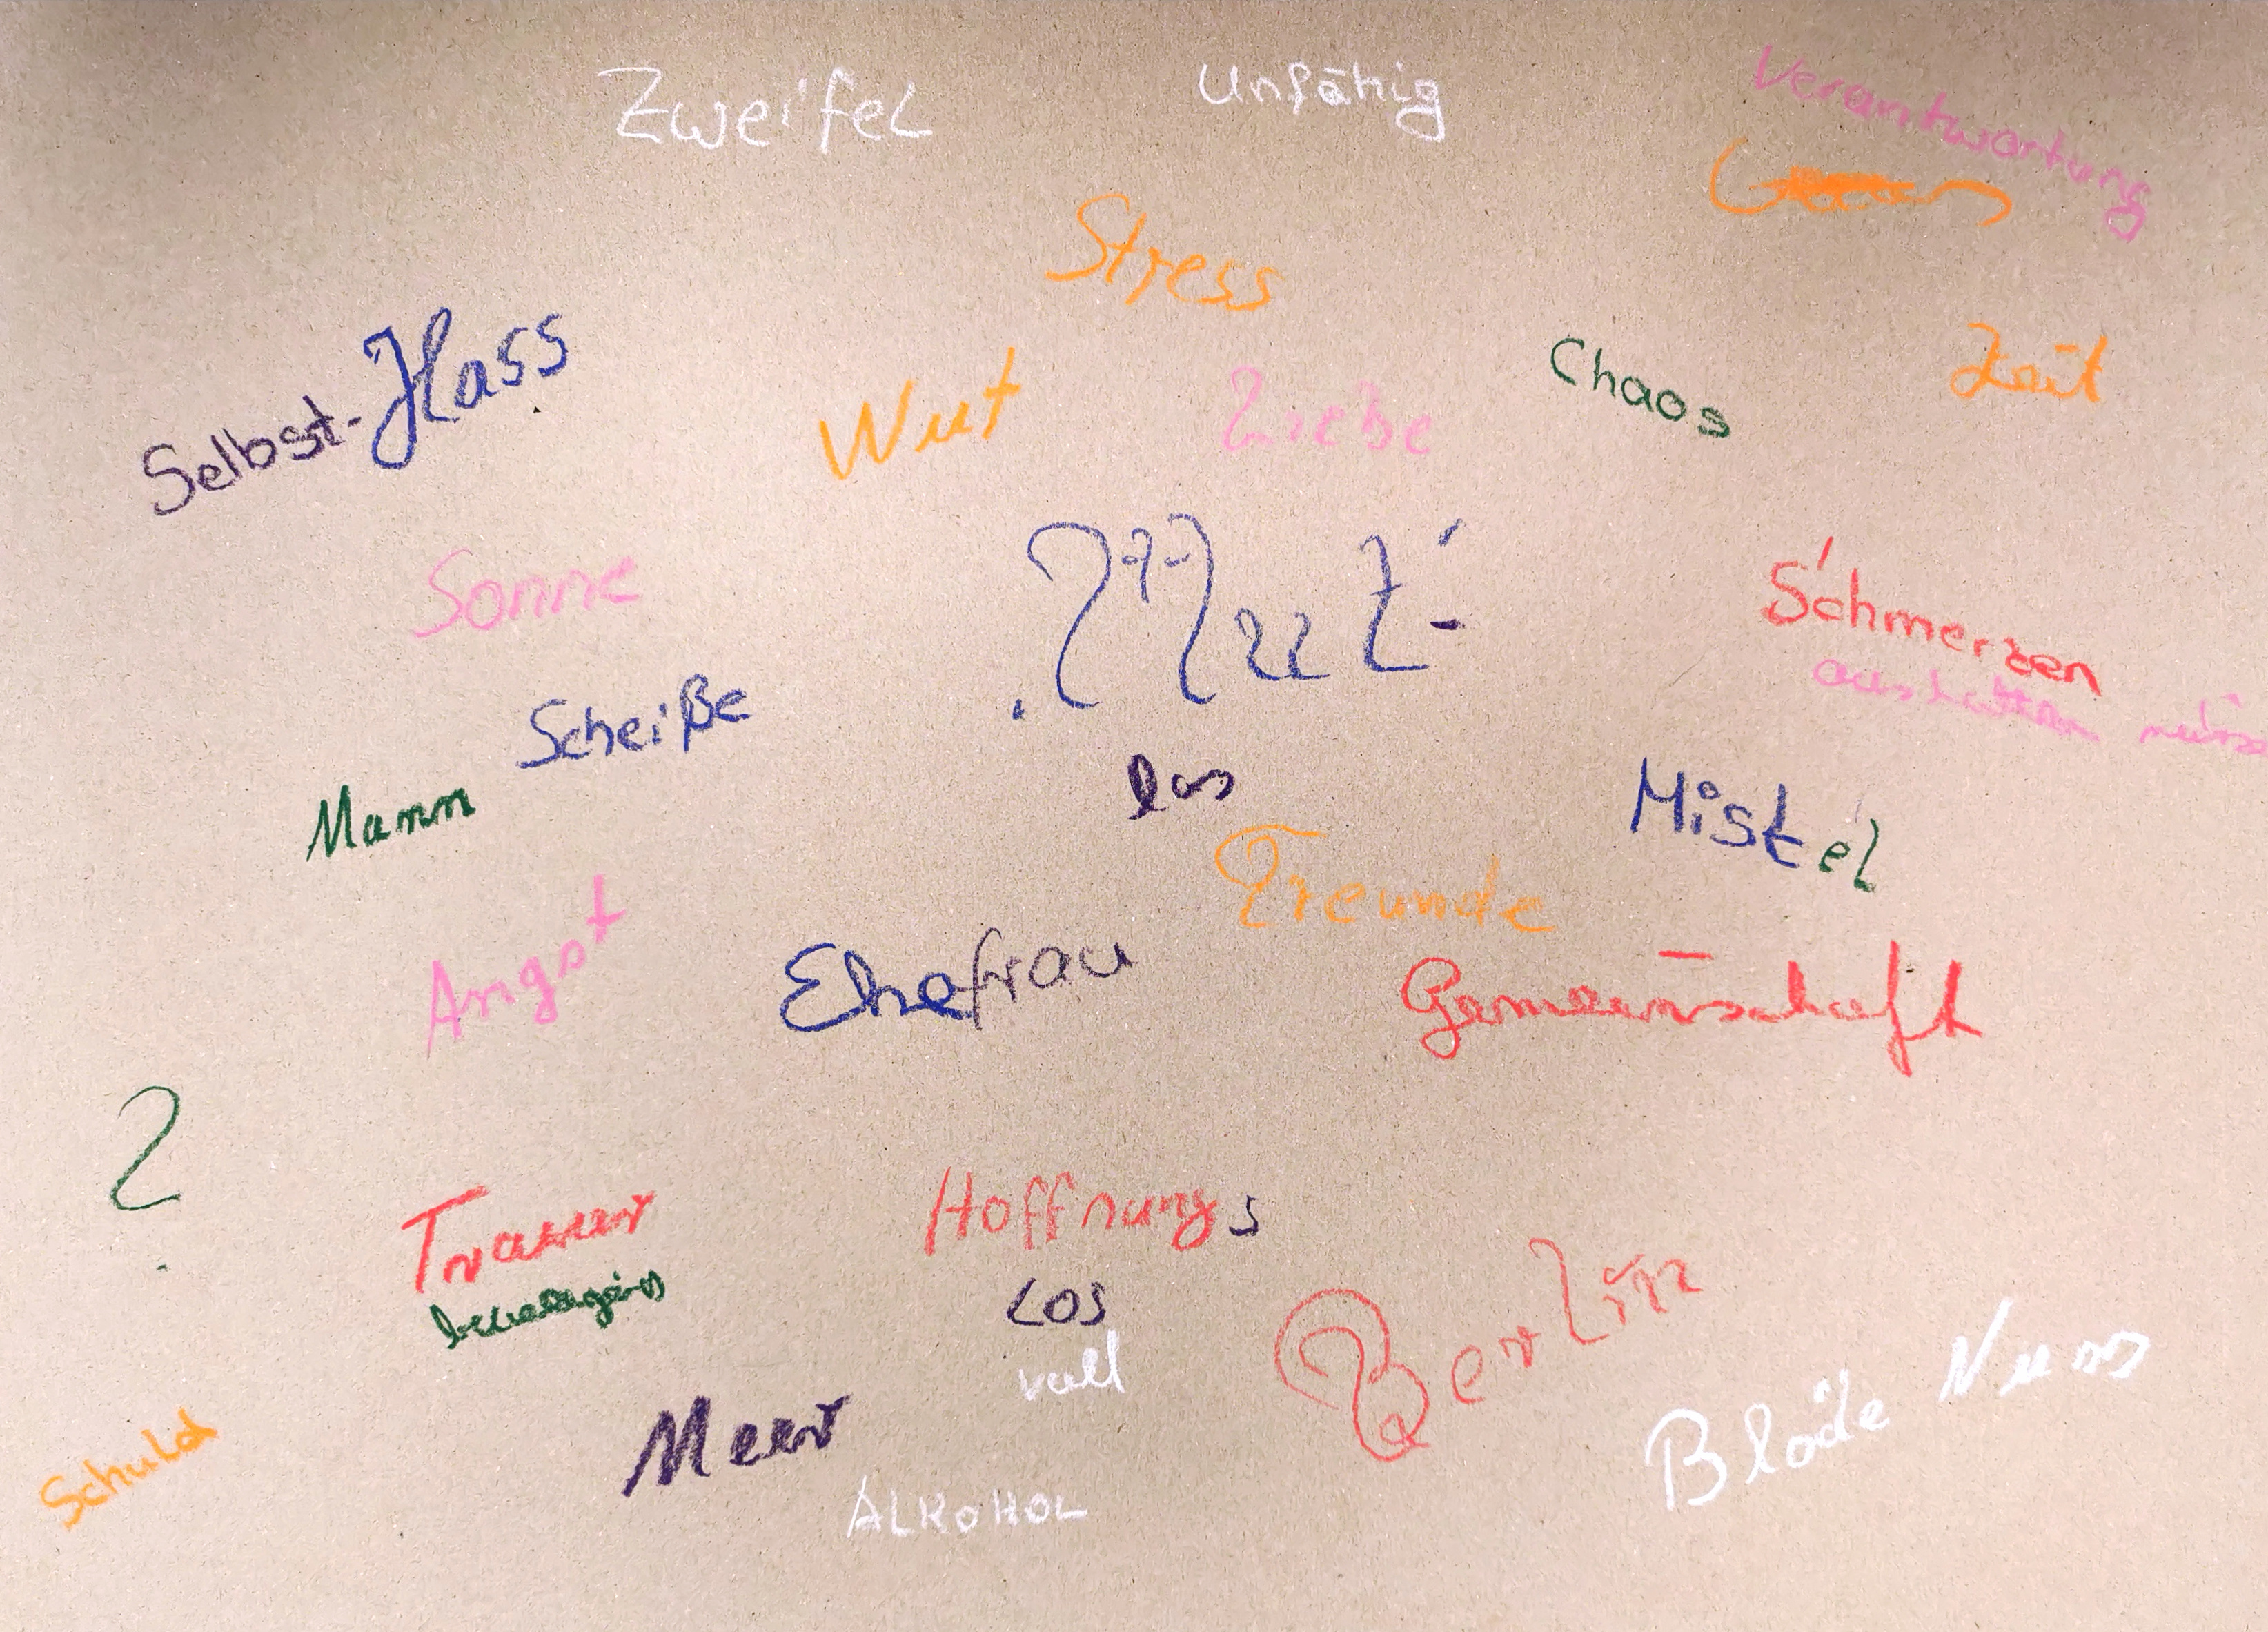 Zweifel
Unfähig
Verantwortung
Stress
Selbst-Hass
Wut
Liebe
Chaos
Zeit
Sonne
Schmerzen
aushalten
Scheiße
Mann
los
Mistel
Freunde
Angst
Ehefrau
Gemeinschaft
?
Trauer
Hoffnungs
Los
voll
Berlin
Blöde Nuss
Meer
Schuld
ALKOHOL